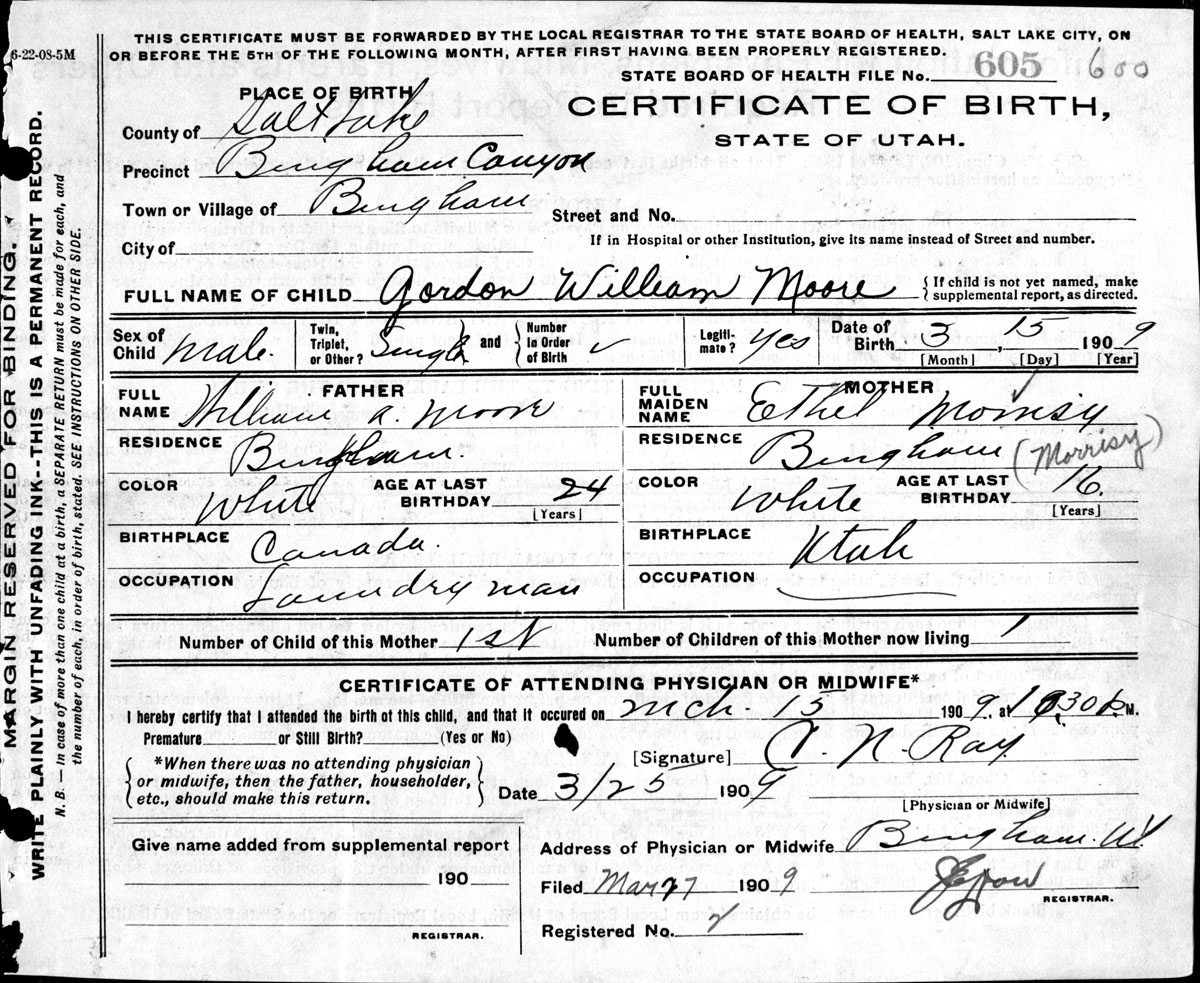 6-22-08-5M
THIS CERTIFICATE MUST BE FORWARDED BY THE LOCAL REGISTRAR TO THE STATE BOARD OF HEALTH, SALT LAKE CITY, ON
OR BEFORE THE 5TH OF THE FOLLOWING MONTH, AFTER FIRST HAVING BEEN PROPERLY REGISTERED.
STATE BOARD OF HEALTH FILE No. 605 600
PLACE OF BIRTH
CERTIFICATE OF BIRTH,
STATE OF UTAH.
County of Salt Lake
Precinct Bingham Canyon
Town or Village of Bingham
Street and No.
If in Hospital or other Institution, give its name instead of Street and number.
City of
FULL NAME OF CHILD Gordon William Moore { If child is not yet named, make
supplemental report, as directed.
Sex of Child Male. Twin, Triplet, or Other? Single } and { Number in Order of Birth Legiti- mate? Yes Date of Birth 3 15 1909
[Month] [Day] [Year]
FATHER
FULL NAME William A. Moore
RESIDENCE Bingham.
COLOR White AGE AT LAST BIRTHDAY 24
[Years]
BIRTHPLACE Canada.
OCCUPATION Laundry man
MOTHER
FULL MAIDEN NAME Ethel Morrisy
RESIDENCE Bingham (Morrisy)
COLOR White AGE AT LAST BIRTHDAY 16.
[Years]
BIRTHPLACE Utah
OCCUPATION
Number of Child of this Mother 1st Number of Children of this Mother now living 1
CERTIFICATE OF ATTENDING PHYSICIAN OR MIDWIFE*
I hereby certify that I attended the birth of this child, and that it occured on Mch 15 1909, at 1030 P M.
Premature or Still Birth? (Yes or No)
[Signature] N. Ray
{ *When there was no attending physician
or midwife, then the father, householder,
etc., should make this return. }
Date 3/25 1909
[Physician or Midwife]
Give name added from supplemental report
190
REGISTRAR.
Address of Physician or Midwife Bingham. Ut
Filed Mar 27 1909
REGISTRAR.
Registered No.
MARGIN RESERVED FOR BINDING.
WRITE PLAINLY WITH UNFADING INK--THIS IS A PERMANENT RECORD.
N. B.— In case of more than one child at a birth, a SEPARATE RETURN must be made for each, and
the number of each, in order of birth, stated. SEE INSTRUCTIONS ON OTHER SIDE.